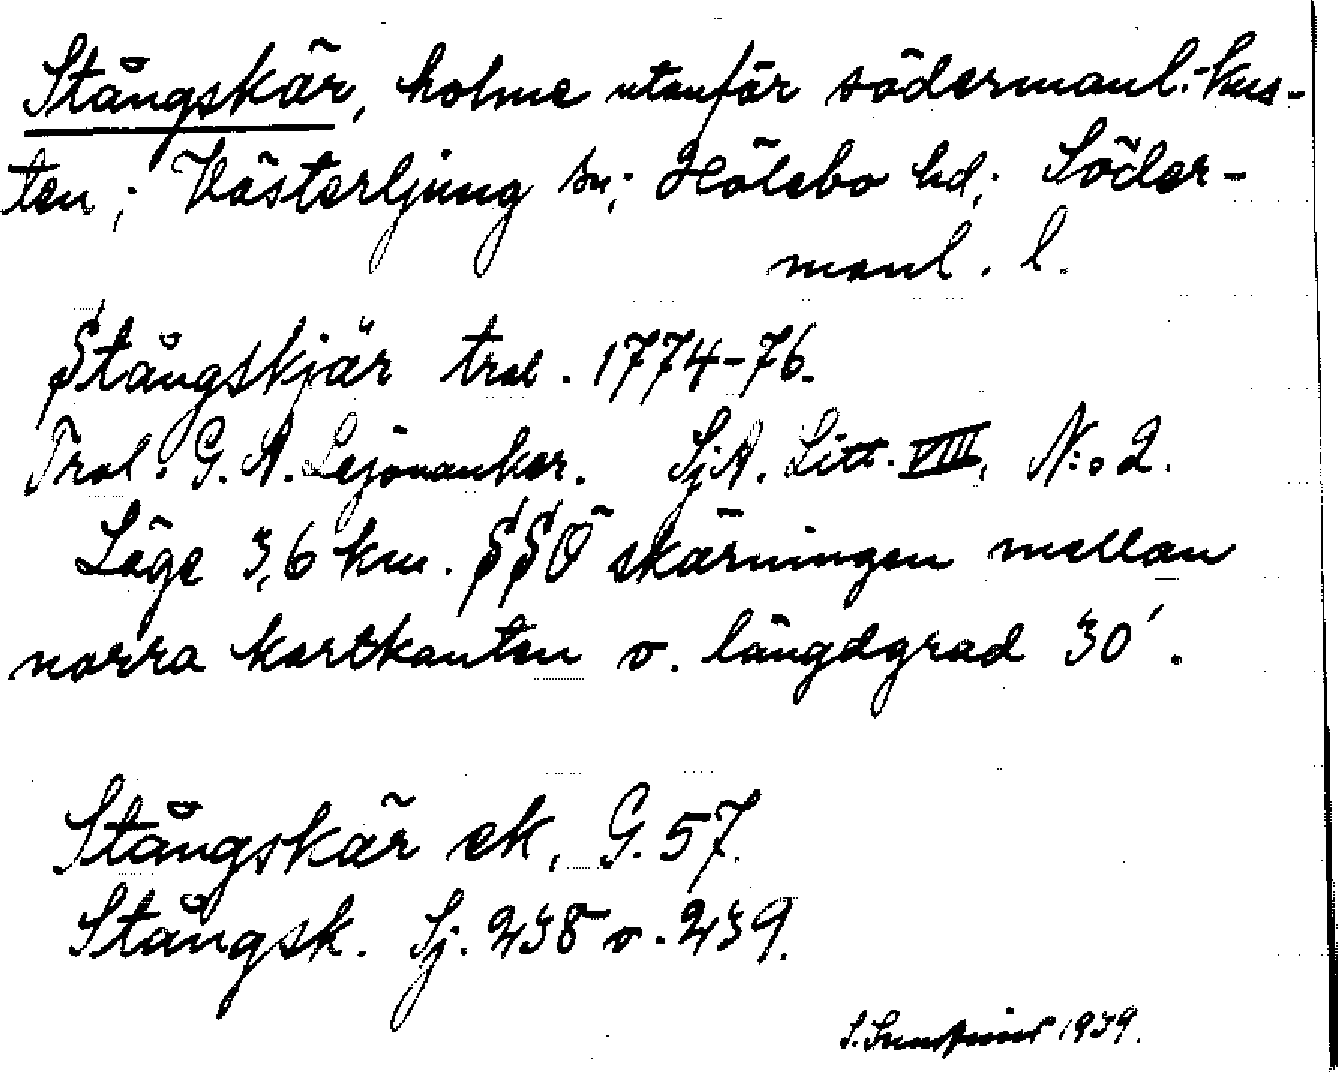 Stångskär, holme utanför södermanl. kus-
ten; Västerljung sn; Hölebo hd; Söder-
manl. l.
Stångskjär trol. 1774-76.
Trol. G. A. Lejonanker. SjA. Litt. VIII, N:o 2.
Läge 3,6 km. SSO skärningen mellan
norra kartkanten o. längdgrad 30'.
Stångskär ek, G. 57.
Stångsk. Sj. 238 o. 239.
S. 1939.